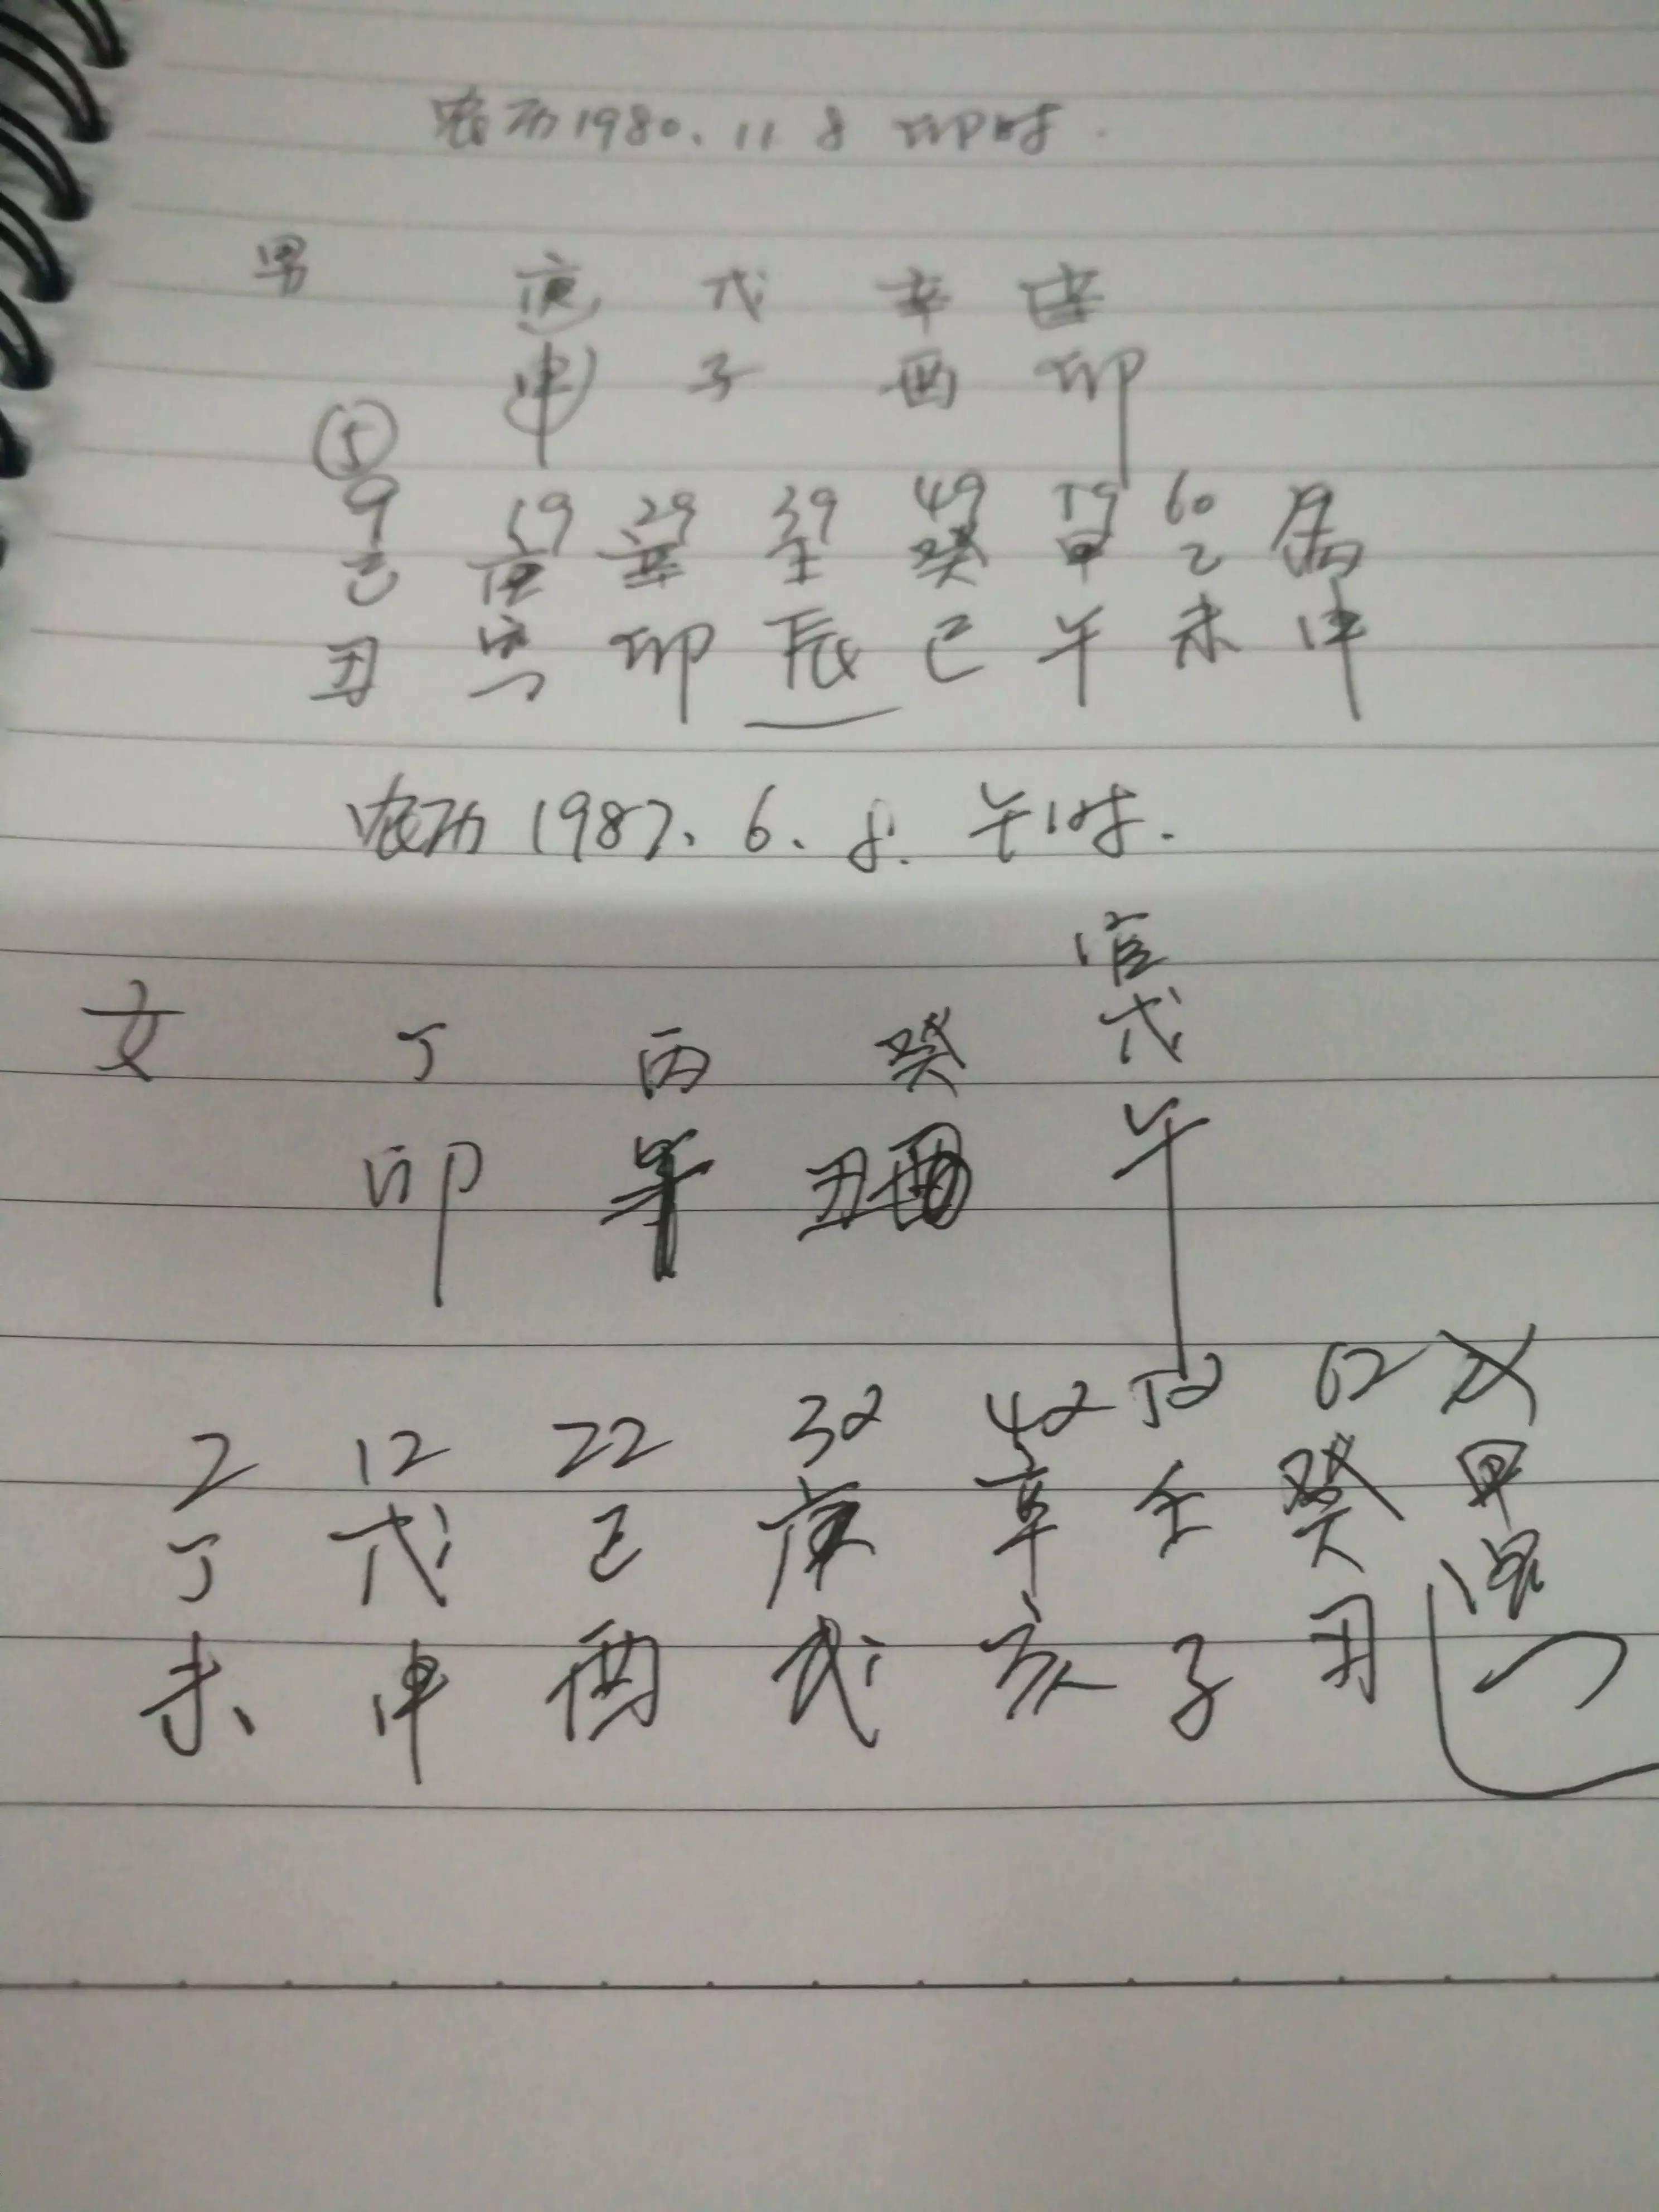 农历1980.11 8 卯时.
男 庚 戊 辛 辛
申 子 酉 卯
⑤
9 19 29 39 49 59 60
己 庚 辛 壬 癸 甲 乙 丙
丑 寅 卯 辰 巳 午 未 申
农历1987、6、8. 午时.
官
女 丁 丙 癸 戊
卯 丑 午
2 12 22 32 42 52 62
丁 戊 己 庚 辛 壬 癸 甲
未 申 酉 戌 亥 子 丑 寅